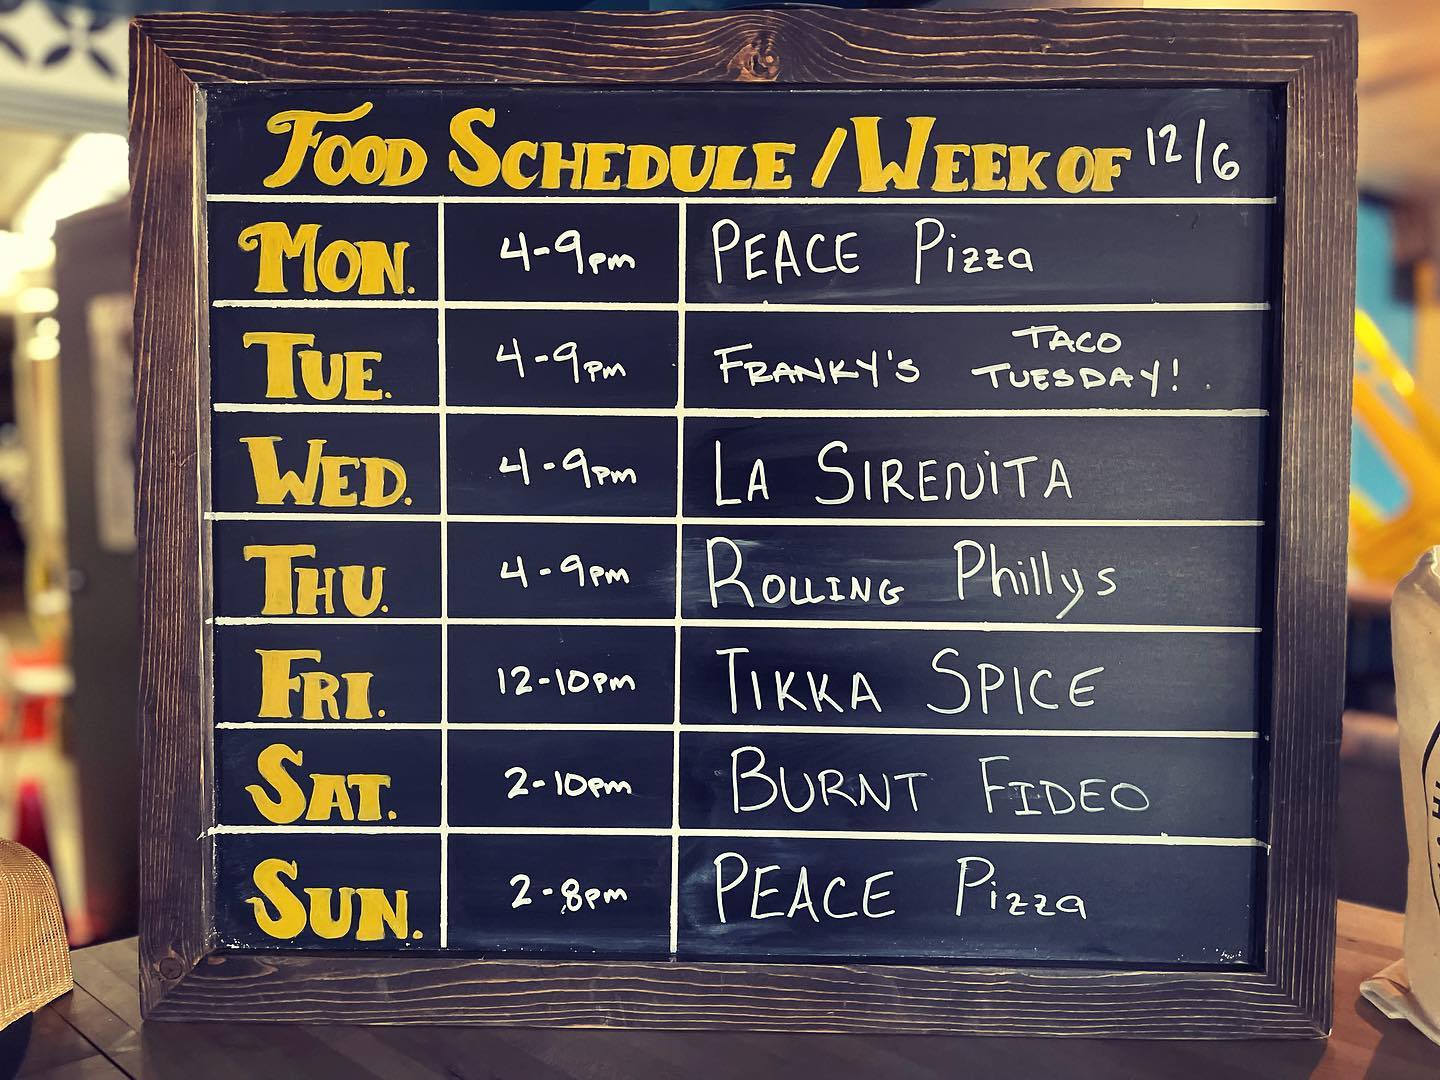 FOOD SCHEDULE / WEEK OF 12/6
MON. 4-9pm PEACE Pizza
TUE. 4-9pm FRANKY'S TACO TUESDAY!
WED. 4-9pm LA SIRENITA
THU. 4-9pm ROLLING Phillys
FRI. 12-10pm TIKKA SPICE
SAT. 2-10pm BURNT FIDEO
SUN. 2-8pm PEACE Pizza